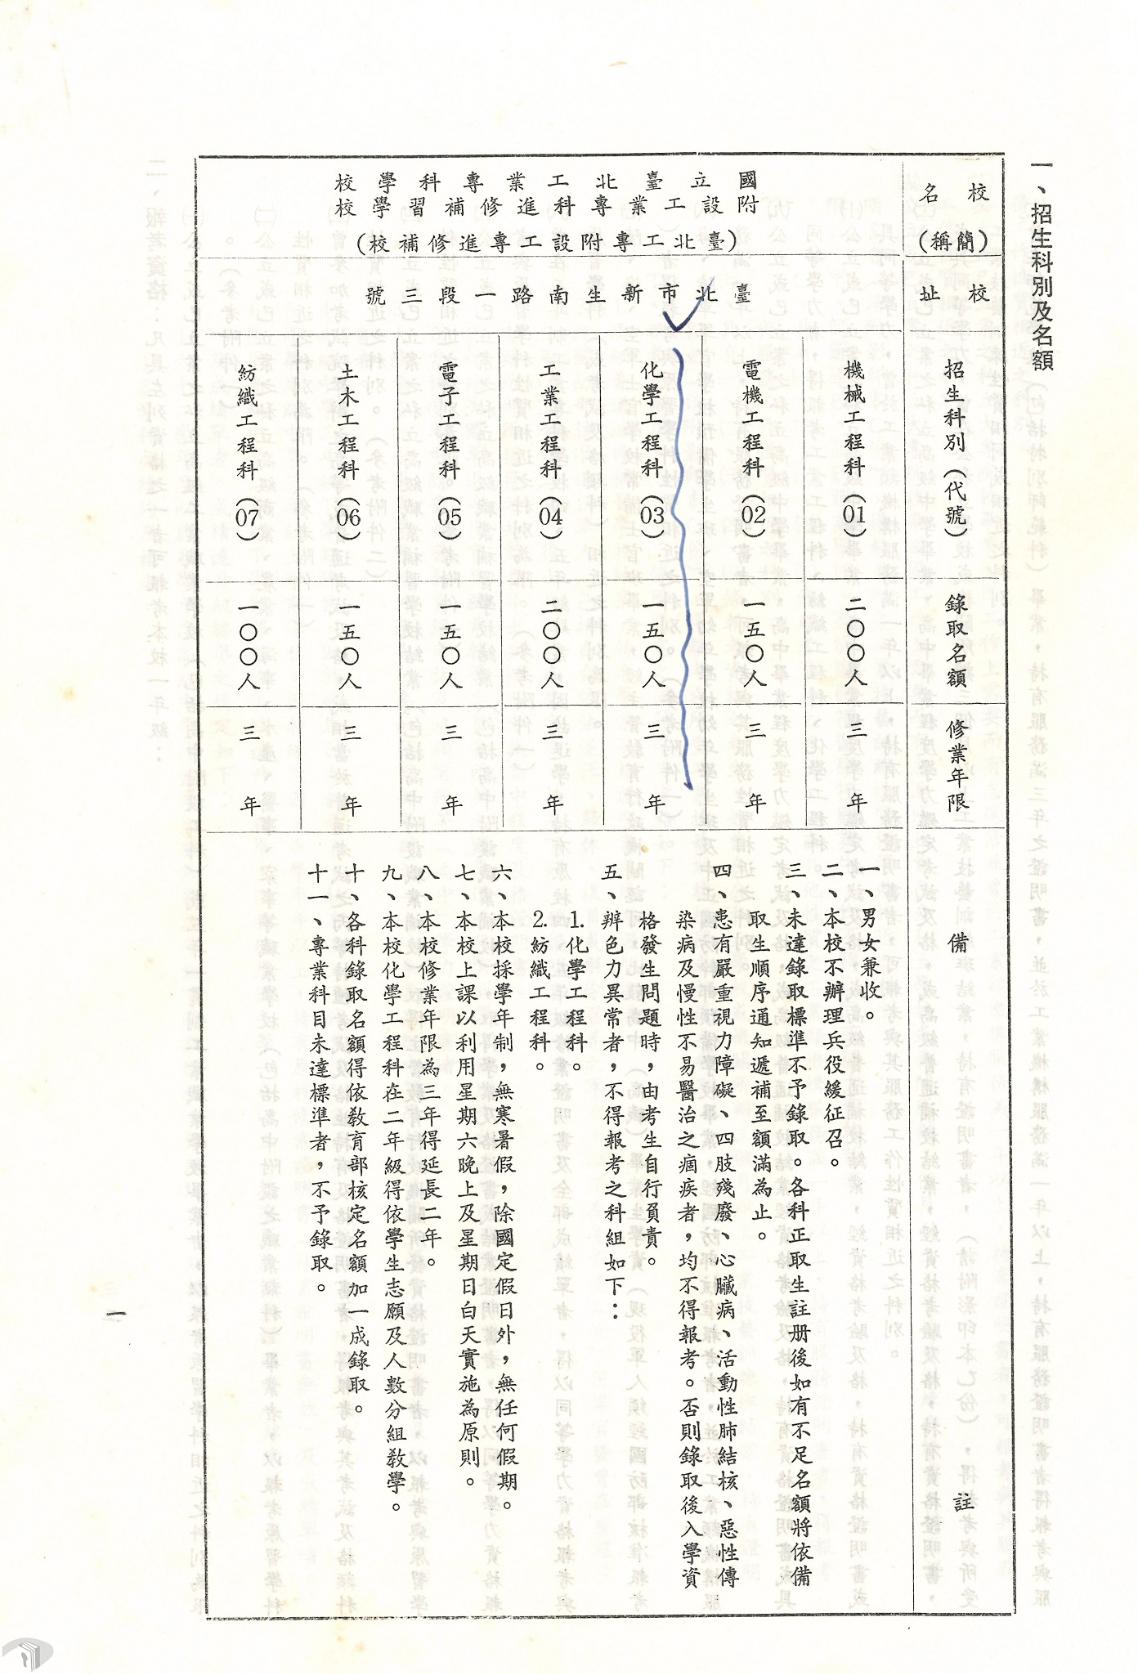 一、招生科別及名額
校名(簡稱)
國立臺北工業專科學校
附設工業專科進修補習學校
(臺北工專附設工專進修補校)
校址
臺北市新生南路一段三號
招生科別(代號)
機械工程科(01)
電機工程科(02)
化學工程科(03)
工業工程科(04)
電子工程科(05)
土木工程科(06)
紡織工程科(07)
錄取名額
二〇〇人
一五〇人
一五〇人
二〇〇人
一五〇人
一五〇人
一〇〇人
修業年限
三年
三年
三年
三年
三年
三年
三年
備註
一、男女兼收。
二、本校不辦理兵役緩征召。
三、未達錄取標準不予錄取。各科正取生註册後如有不足名額將依備
取生順序通知遞補至額滿為止。
四、患有嚴重視力障礙、四肢殘廢、心臟病、活動性肺結核、惡性傳
染病及慢性不易醫治之痼疾者，均不得報考。否則錄取後入學資
格發生問題時，由考生自行負責。
五、辨色力異常者，不得報考之科組如下：
1.化學工程科。
2.紡織工程科。
六、本校採學年制，無寒暑假，除國定假日外，無任何假期。
七、本校上課以利用星期六晚上及星期日白天實施為原則。
八、本校修業年限為三年得延長二年。
九、本校化學工程科在二年級得依學生志願及人數分組教學。
十、各科錄取名額得依教育部核定名額加一成錄取。
十一、專業科目未達標準者，不予錄取。
一